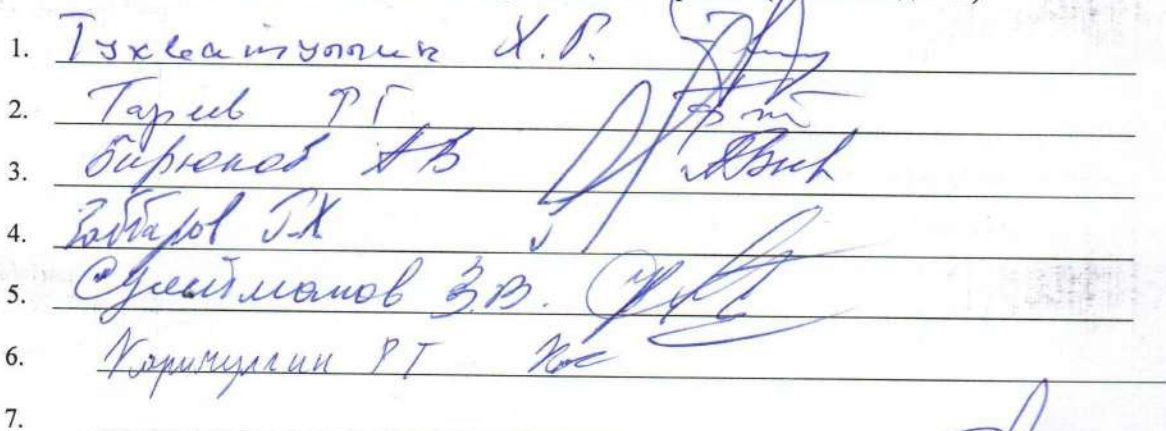 1. Тухватуллин Х.Г.
2. Гареев РГ
3. Бирюков АВ
4. Заббаров Г.Х
5. Сулейманов З.В.
6. Каримуллин РТ
7.